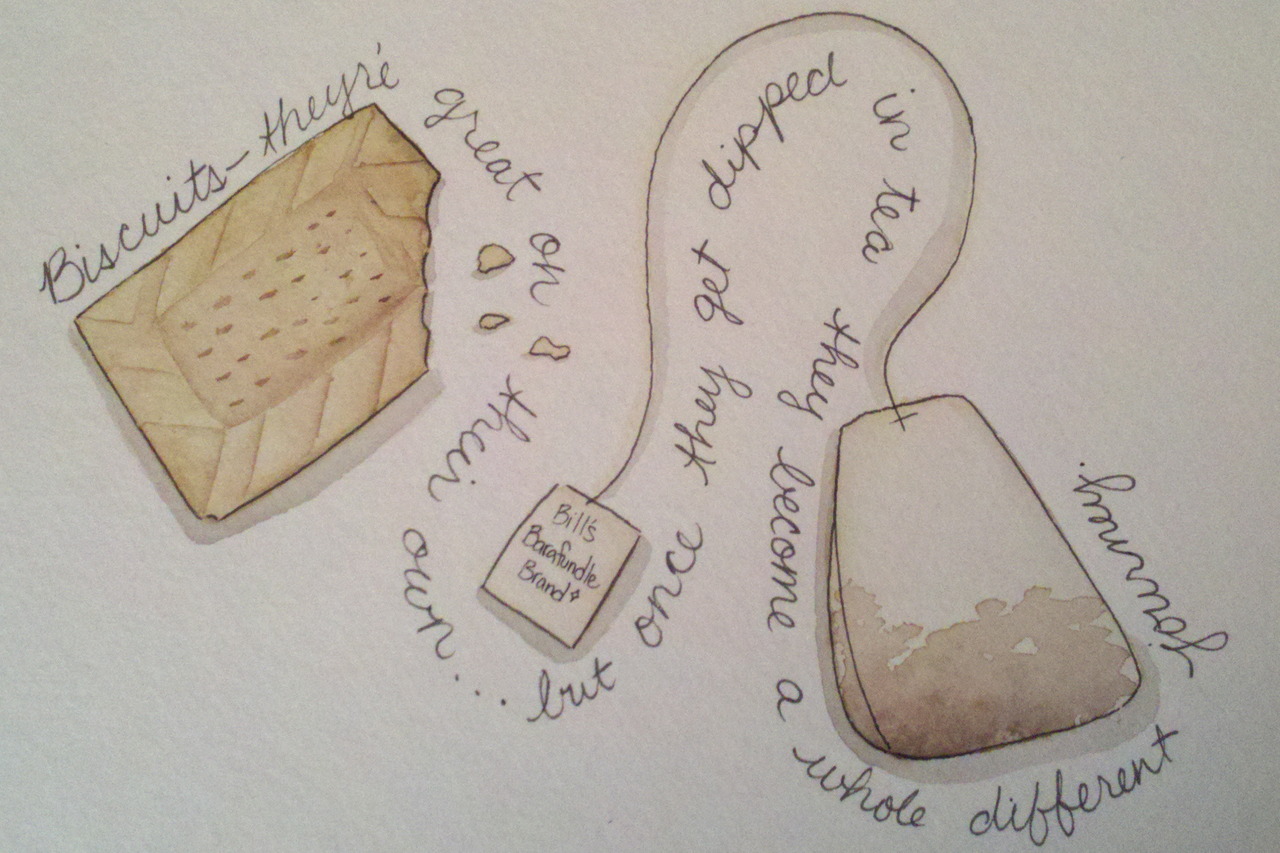 Biscuits- they're great on their own... but once they get dipped in tea they become a whole different journey.
Bill's
Barafundle
Brand